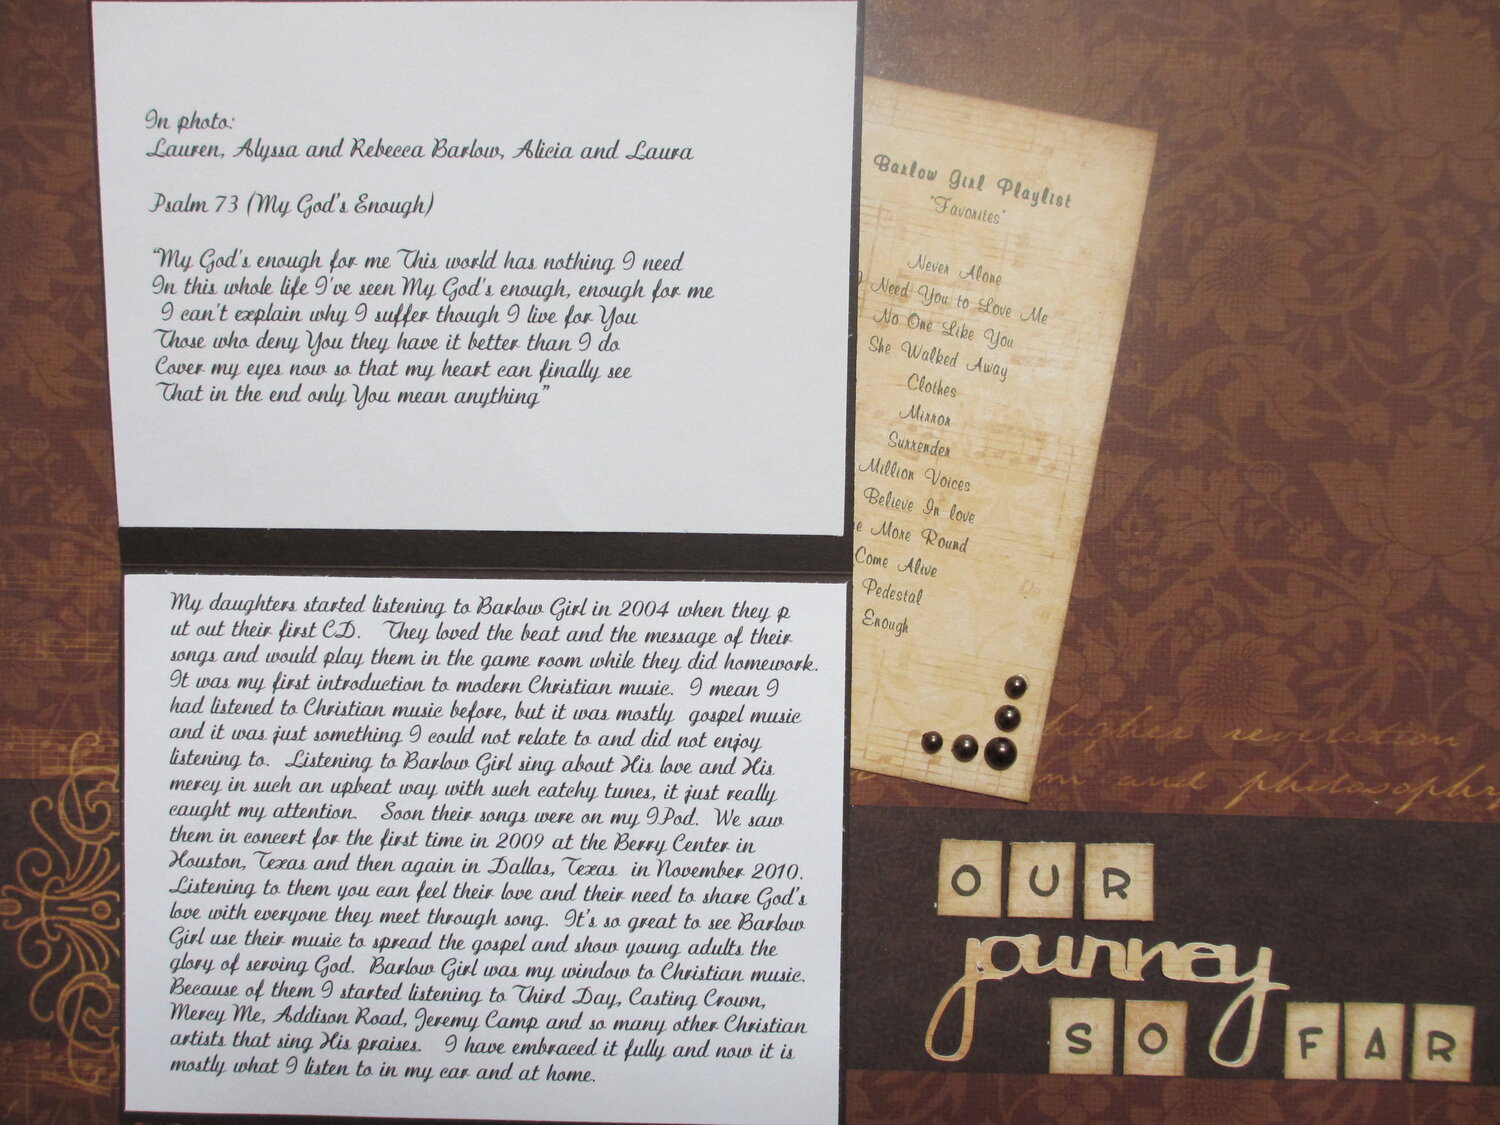 In photo:
Lauren, Alyssa and Rebecca Barlow, Alicia and Laura
Psalm 73 (My God's Enough)
"My God's enough for me This world has nothing I need
In this whole life I've seen My God's enough, enough for me
I can't explain why I suffer though I live for You
Those who deny You they have it better than I do
Cover my eyes now so that my heart can finally see
That in the end only You mean anything"
My daughters started listening to Barlow Girl in 2004 when they p
ut out their first CD. They loved the beat and the message of their
songs and would play them in the game room while they did homework.
It was my first introduction to modern Christian music. I mean I
had listened to Christian music before, but it was mostly gospel music
and it was just something I could not relate to and did not enjoy
listening to. Listening to Barlow Girl sing about His love and His
mercy in such an upbeat way with such catchy tunes, it just really
caught my attention. Soon their songs were on my IPod. We saw
them in concert for the first time in 2009 at the Berry Center in
Houston, Texas and then again in Dallas, Texas in November 2010.
Listening to them you can feel their love and their need to share God's
love with everyone they meet through song. It's so great to see Barlow
Girl use their music to spread the gospel and show young adults the
glory of serving God. Barlow Girl was my window to Christian music.
Because of them I started listening to Third Day, Casting Crown,
Mercy Me, Addison Road, Jeremy Camp and so many other Christian
artists that sing His praises. I have embraced it fully and now it is
mostly what I listen to in my car and at home.
Barlow Girl Playlist
"Favorites"
Never Alone
I Need You to Love Me
No One Like You
She Walked Away
Clothes
Mirror
Surrender
Million Voices
Believe In love
e More Round
Come Alive
Pedestal
Enough
higher revelation
m and philosophy
OUR
journey
SO FAR